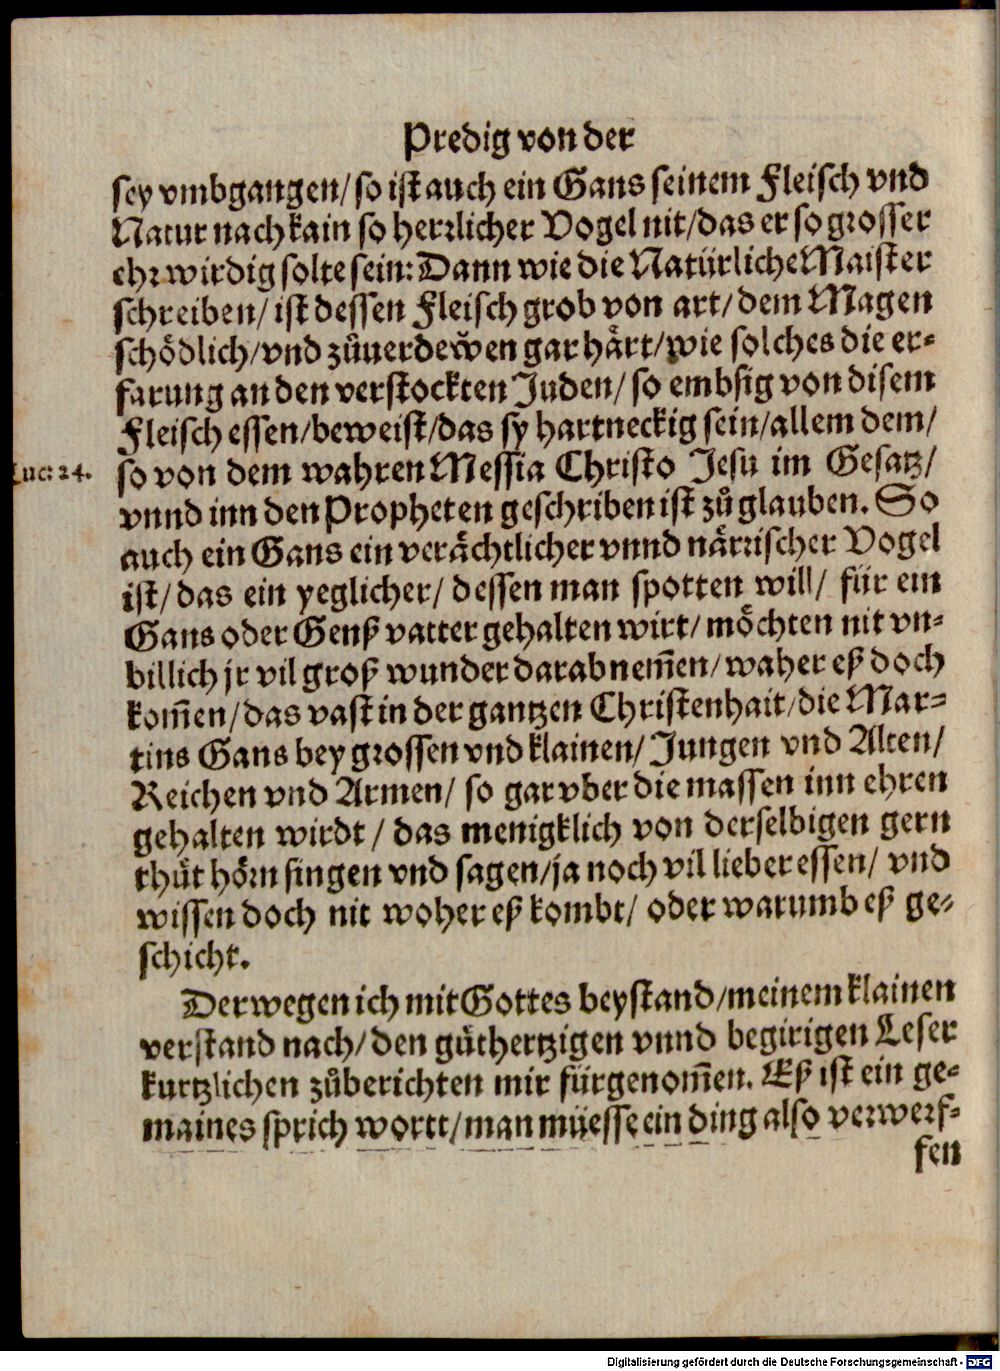 Predig von der
sey vmbgangen/ so ist auch ein Gans seinem Fleisch vnd
Natur nach kain so herrlicher Vogel nit/ das er so grosser
ehrwirdig solte sein: Dann wie die Natürliche Maister
schreiben/ ist dessen Fleisch grob von art/ dem Magen
schödlich/ vnd zůuerdewen gar härt/ wie solches die er-
farung an den verstockten Juden/ so embsig von disem
Fleisch essen/ beweist/ das sy hartneckig sein/ allem dem/
Luc: 24. so von dem wahren Messia Christo Jesu im Gesatz/
vnnd inn den Propheten geschriben ist zů glauben. So
auch ein Gans ein verächtlicher vnnd närrischer Vogel
ist/ das ein yeglicher/ dessen man spotten will/ für ein
Gans oder Genß vatter gehalten wirt/ möchten nit vn-
billich jr vil groß wunder darab nem̃en/ waher eß doch
kom̃en/ das vast in der gantzen Christenhait/ die Mar-
tins Gans bey grossen vnd klainen/ Jungen vnd Alten/
Reichen vnd Armen/ so gar vber die massen inn ehren
gehalten wirdt/ das menigklich von derselbigen gern
thůt hörn singen vnd sagen/ ja noch vil lieber essen/ vnd
wissen doch nit woher eß kombt/ oder warumb eß ge-
schicht.
Derwegen ich mit Gottes beystand/ meinem klainen
verstand nach/ den gůthertzigen vnnd begirigen Leser
kurtzlichen zůberichten mir fürgenom̃en. Eß ist ein ge-
maines sprich wortt/ man müesse ein ding also verwerf-
fen
Digitalisierung gefördert durch die Deutsche Forschungsgemeinschaft - DFG